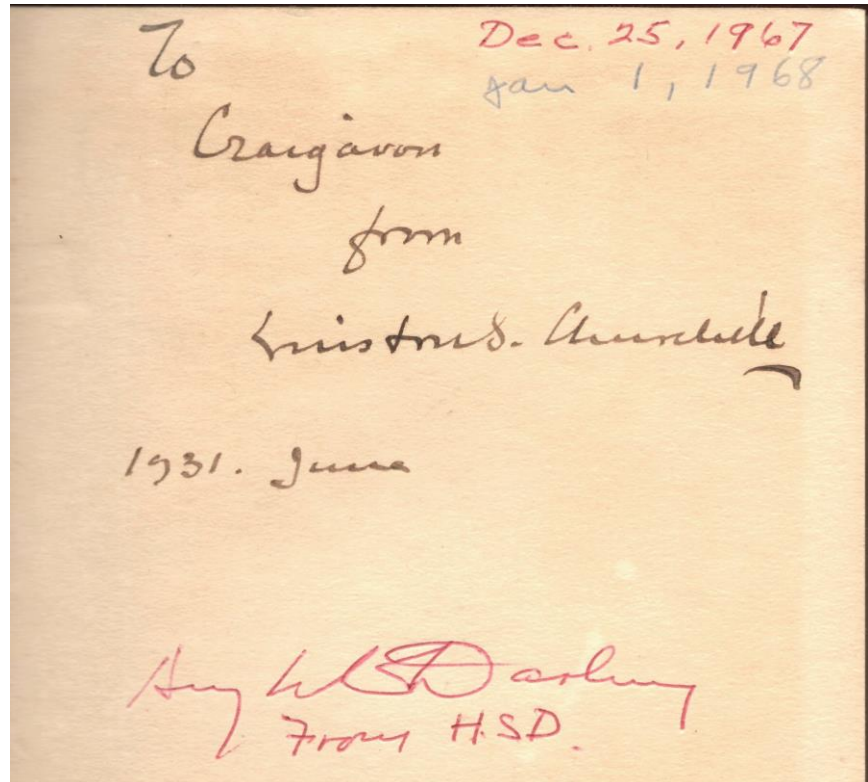 To
Dec. 25, 1967
Jan 1, 1968
Craigavon
from
Winston S. Churchill
1931. June
From H.S.D.